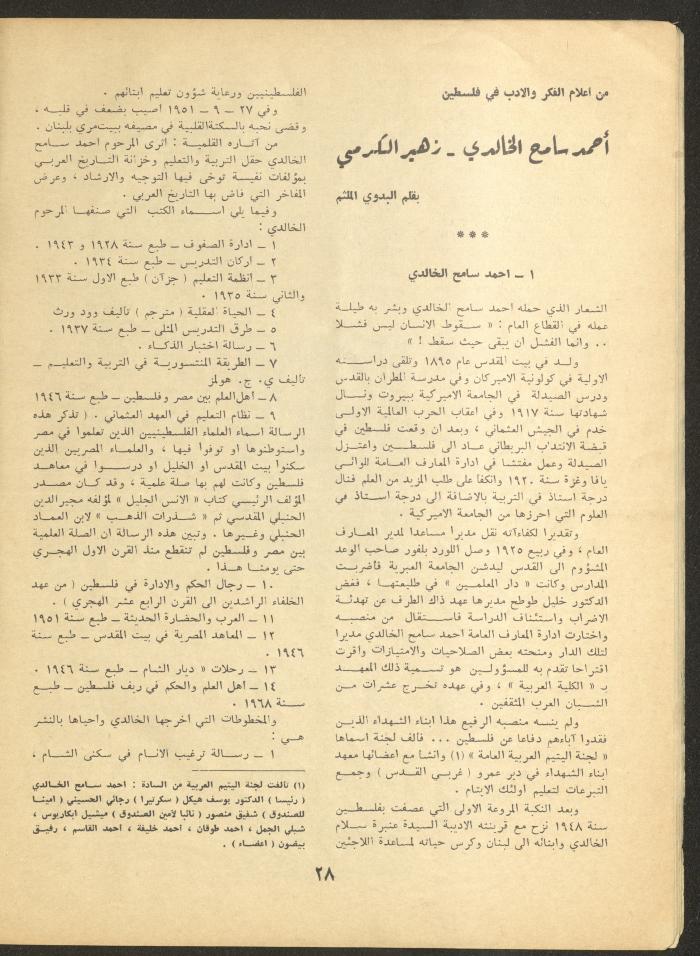 من اعلام الفكر والادب في فلسطين
أحمد سامح الخالدي ـ زهير الكرمي
بقلم البدوي الملثم
***
١ ـ احمد سامح الخالدي
الشعار الذي حمله احمد سامح الخالدي وبشر به طيلة
عمله في القطاع العام : « سقوط الانسان ليس فشلا
.. وانما الفشل ان يبقى حيث سقط ! »
ولد في بيت المقدس عام ١٨٩٥ وتلقى دراسته
الاولية في كولونية الاميركان وفي مدرسة المطران بالقدس
ودرس الصيدلة في الجامعة الاميركية ببيروت ونال
شهادتها سنة ١٩١٧ وفي اعقاب الحرب العالمية الاولى
خدم في الجيش العثماني ، وبعد ان وقعت فلسطين في
قبضة الانتداب البريطاني عاد الى فلسطين واعتزل
الصيدلة وعمل مفتشا في ادارة المعارف العامة للوائي
يافا وغزة سنة ١٩٢٠ وانكفأ على طلب المزيد من العلم فنال
درجة استاذ في التربية بالاضافة الى درجة استاذ في
العلوم التي احرزها من الجامعة الاميركية .
وتقديرا لكفاءاته نقل مديرا مساعدا لمدير المعارف
العام ، وفي ربيع ١٩٢٥ وصل اللورد بلفور صاحب الوعد
المشؤوم الى القدس ليدشن الجامعة العبرية فأضربت
المدارس وكانت « دار المعلمين » في طليعتها ، فغض
الدكتور خليل طوطح مديرها عهد ذاك الطرف عن تهدئة
الاضراب واستئناف الدراسة فاستقال من منصبه
واختارت ادارة المعارف العامة احمد سامح الخالدي مديرا
لتلك الدار ومنحته بعض الصلاحيات والامتيازات واقرت
اقتراحا تقدم به للمسؤولين هو تسمية ذلك المعهد
بـ « الكلية العربية » ، وفي عهده تخرج عشرات من
الشبان العرب المثقفين .
ولم ينسه منصبه الرفيع هذا ابناء الشهداء الذين
فقدوا آباءهم دفاعا عن فلسطين ... فألف لجنة اسماها
« لجنة اليتيم العربية العامة » (١) وانشأ مع اعضائها معهد
ابناء الشهداء في دير عمرو ( غربي القدس ) وجمع
التبرعات لتعليم اولئك الايتام .
وبعد النكبة المروعة الاولى التي عصفت بفلسطين
سنة ١٩٤٨ نزح مع قرينته الاديبة السيدة عنبرة سلام
الخالدي وابنائه الى لبنان وكرس حياته لمساعدة اللاجئين
الفلسطينيين ورعاية شؤون تعليم ابنائهم .
وفي ٢٧ ـ ٩ ـ ١٩٥١ اصيب بضعف في قلبه ،
وقضى نحبه بالسكتة القلبية في مصيفه ببيت مري بلبنان .
من آثاره القلمية : اثرى المرحوم احمد سامح
الخالدي حقل التربية والتعليم وخزانة التاريخ العربي
بمؤلفات نفيسة توخى فيها التوجيه والارشاد ، وعرض
المفاخر التي فاض بها التاريخ العربي .
وفيما يلي اسماء الكتب التي صنفها المرحوم
الخالدي :
١ ـ ادارة الصفوف ـ طبع سنة ١٩٢٨ و ١٩٤٣ .
٢ ـ اركان التدريس ـ طبع سنة ١٩٣٤ .
٣ ـ انظمة التعليم ( جزآن ) طبع الاول سنة ١٩٣٣
والثاني سنة ١٩٣٥ .
٤ ـ الحياة العقلية ( مترجم ) تأليف وود ورث
٥ ـ طرق التدريس المثلى ـ طبع سنة ١٩٣٧ .
٦ ـ رسالة اختبار الذكاء .
٧ ـ الطريقة المنتسورية في التربية والتعليم ـ
تأليف ي. ج. هولمز
٨ ـ اهل العلم بين مصر وفلسطين ـ طبع سنة ١٩٤٦
٩ ـ نظام التعليم في العهد العثماني . ( تذكر هذه
الرسالة اسماء العلماء الفلسطينيين الذين تعلموا في مصر
واستوطنوها او توفوا فيها ، والعلماء المصريين الذين
سكنوا بيت المقدس او الخليل او درسوا في معاهد
فلسطين وكانت لهم بها صلة علمية ، وقد كان مصدر
المؤلف الرئيسي كتاب « الانس الجليل » لمؤلفه مجير الدين
الحنبلي المقدسي ثم « شذرات الذهب » لابن العماد
الحنبلي وغيرها . وتبين هذه الرسالة ان الصلة العلمية
بين مصر وفلسطين لم تنقطع منذ القرن الاول الهجري
حتى يومنا هذا .
١٠ ـ رجال الحكم والادارة في فلسطين ( من عهد
الخلفاء الراشدين الى القرن الرابع عشر الهجري ) .
١١ ـ العرب والحضارة الحديثة ـ طبع سنة ١٩٥١
١٢ ـ المعاهد المصرية في بيت المقدس ـ طبع سنة
١٩٤٦ .
١٣ ـ رحلات « ديار الشام ـ طبع سنة ١٩٤٦ .
١٤ ـ اهل العلم والحكم في ريف فلسطين ـ طبع
سنة ١٩٦٨ .
والمخطوطات التي اخرجها الخالدي واحياها بالنشر
هي :
١ ـ رسالة ترغيب الانام في سكنى الشام ،
(١) تألفت لجنة اليتيم العربية من السادة : احمد سامح الخالدي
( رئيسا ) الدكتور يوسف هيكل ( سكرتيرا ) رجائي الحسيني ( امينا
للصندوق ) شفيق منصور ( نائبا لامين الصندوق ) ميشيل ابكاريوس ،
شبلي الجمل ، احمد طوقان ، احمد خليفة ، احمد القاسم ، رفيق
بيضون ( اعضاء ) .
٢٨